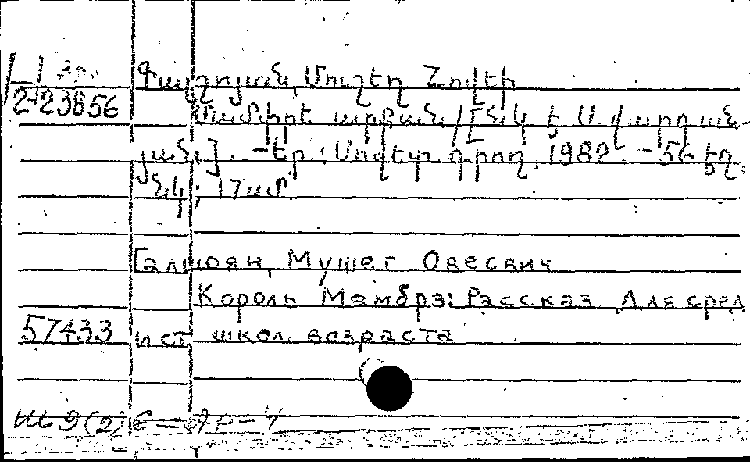 2-23856
Գալշոյան, Մուշեղ Հովեի
Մամփրե արքան /[Նկ. է Ա. Վարդան-
յան]. - Եր.: Սովետ. գրող, 1982. - 56 էջ,
նկ.; 17 սմ.
Галшоян, Мушег Овесвич
Король Мамбрэ: Рассказ Для сред
57433 и ст школ. возраста